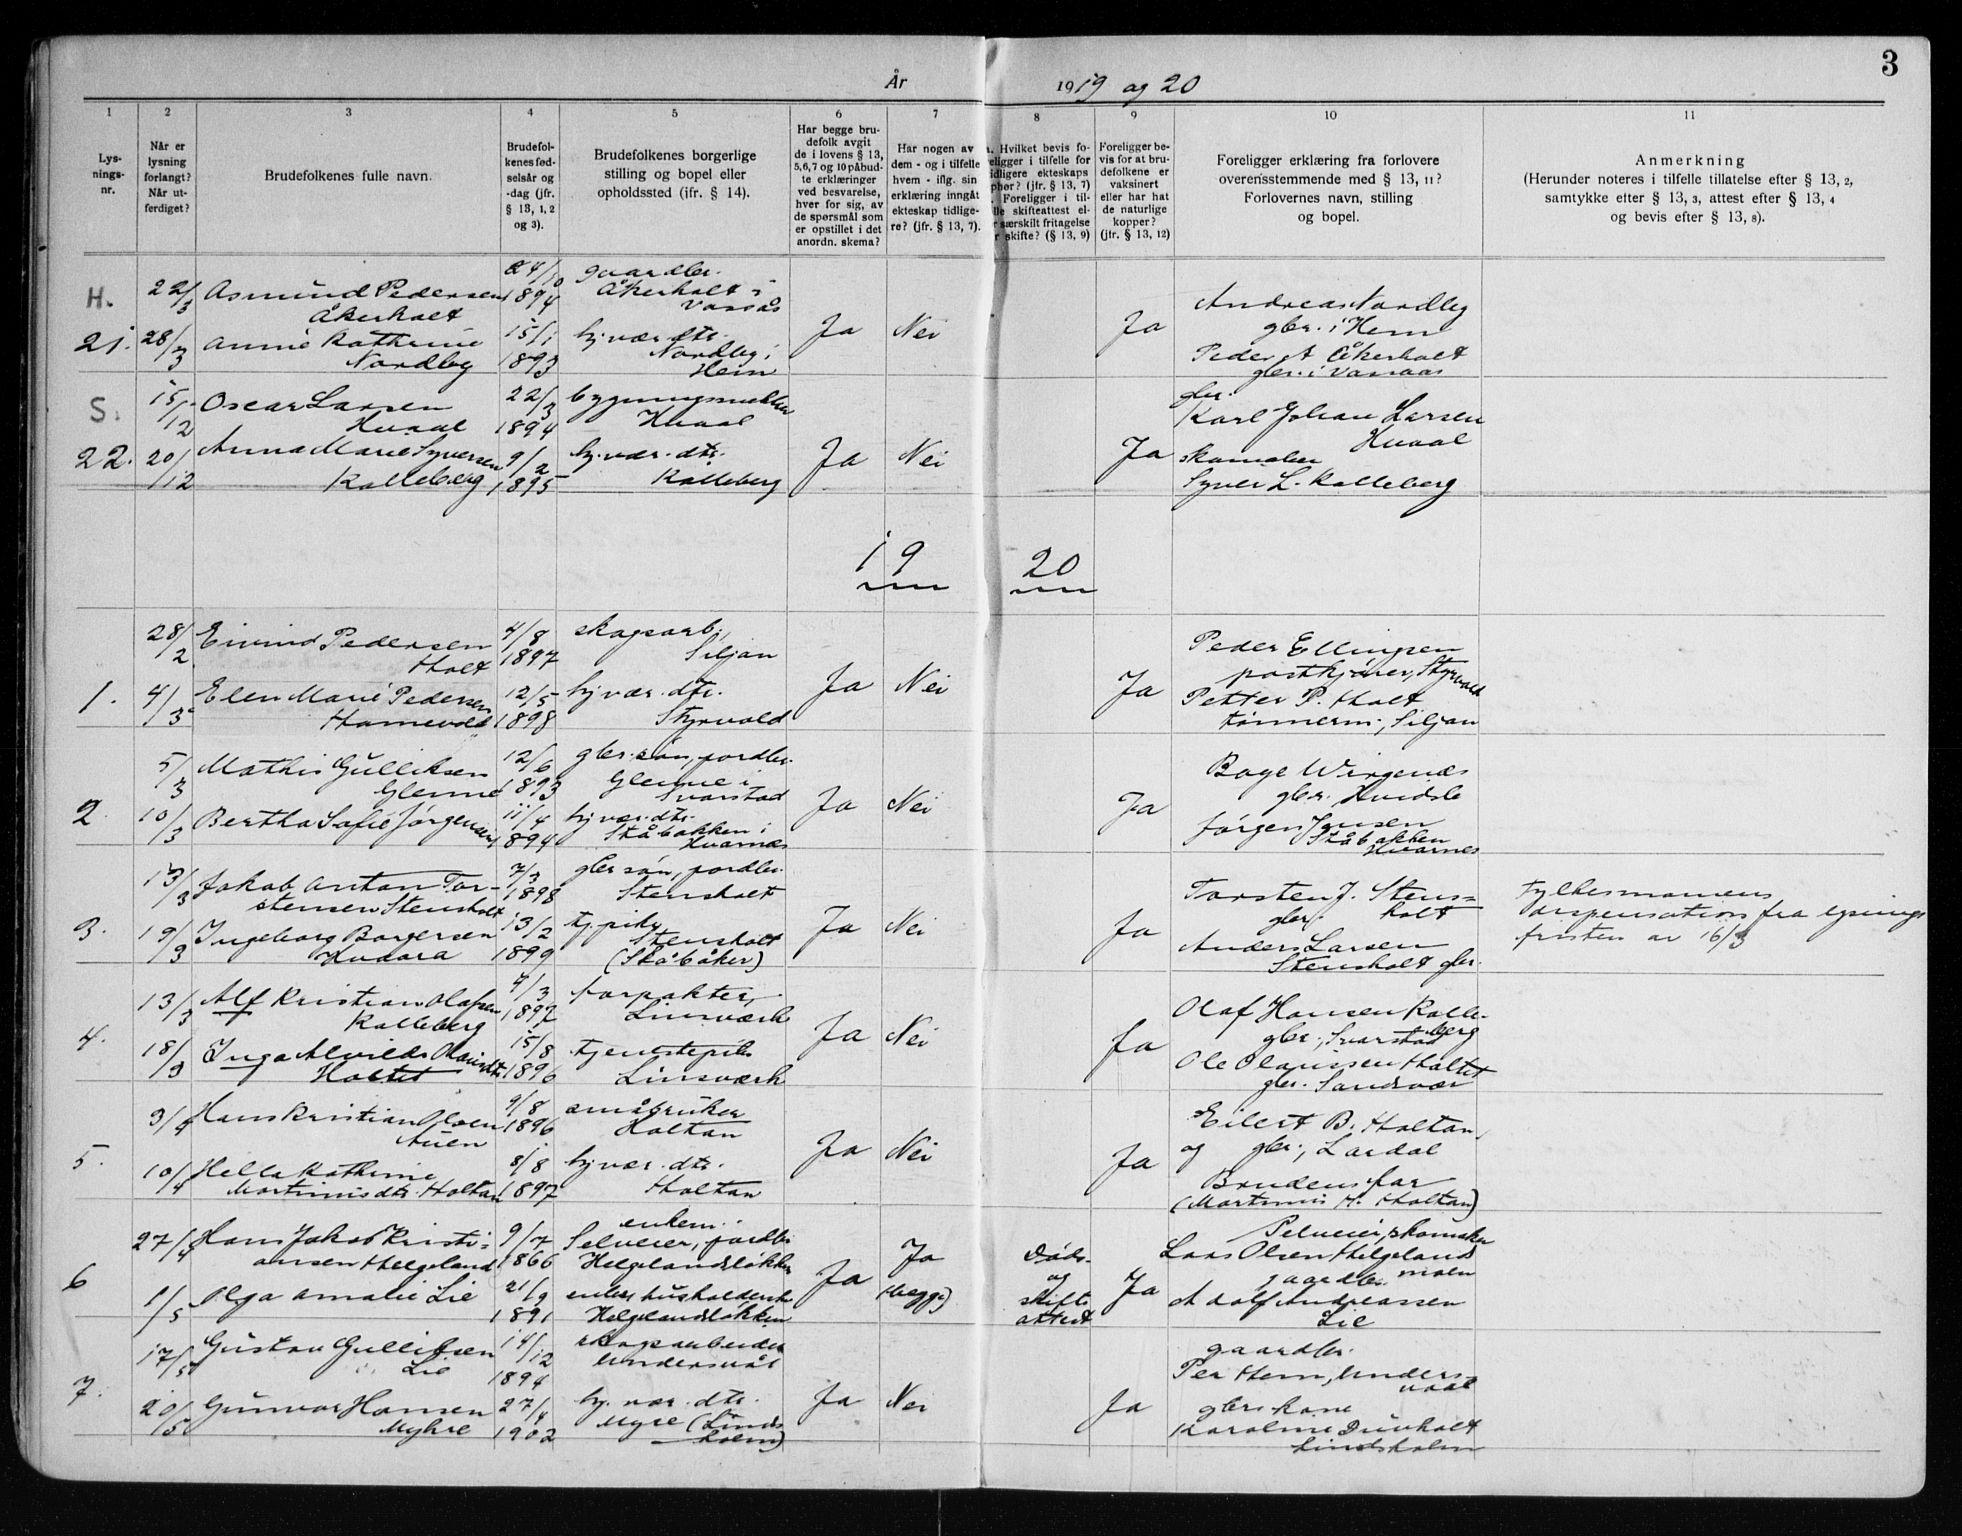 3
År 1919 og 20
1 2 3 4 5 6 7 8 9 10 11
Lys-
nings-
nr.
Når er
lysning
forlangt?
Når ut-
ferdiget?
Brudefolkenes fulle navn.
Brudefol-
kenes fød-
selsår og
-dag (jfr.
§ 13, 1, 2
og 3).
Brudefolkenes borgerlige
stilling og bopel eller
opholdssted (ifr. § 14).
Har begge bru-
defolk avgit
de i lovens § 13,
5,6,7 og 10 påbud-
te erklæringer
ved besvarelse,
hver for sig, av
de spørsmål som
er opstillet i det
anordn. skema?
Har nogen av
dem - og i tilfelle
hvem - iflg. sin
erklæring inngåt
ekteskap tidlige-
re? (jfr. § 13, 7).
Hvilket bevis fo-
religger i tilfelle for
tidligere ekteskaps
ophør? (jfr. § 13, 7)
Foreligger i til-
felle skifteattest el-
ler særskilt fritagelse
for skifte? (§ 13, 9)
Foreligger be-
vis for at bru-
defolkene er
vaksinert
eller har hat
de naturlige
kopper?
(jfr. § 13, 12)
Foreligger erklæring fra forlovere
overensstemmende med § 13, 11?
Forlovernes navn, stilling
og bopel.
Anmerkning
(Herunder noteres i tilfelle tillatelse efter § 13, 2,
samtykke efter § 13, 3, attest efter § 13, 4
og bevis efter § 13, 8).
H.
21.
22/3
28/3
Asmund Pedersen
Åkerholt
Anne Kathrine
Nordby
24/10
1894
15/1
1893
gaardbr.
Åkerholt i
Vassås
hj.vær.dtr.
Nordby i
Hem
Ja Nei Ja
Andreas Nordby
gbr. i Hem
Peder A Åkerholt
gbr. i Vassaas
S.
22.
15/12
20/12
Oscar Larsen
Hvaal
Anna Marie Syversen
Kalleberg
22/3
1894
9/2
1895
Hvaal
hj.vær.dtr.
Kalleberg
Ja Nei Ja
gbr.
Karl Johan Larsen
Hvaal
skomaker
Syver L. Kalleberg
19 20
1.
28/2
4/3
Eivind Pedersen
Holt
Elen Marie Pedersen
Hamevold
4/8
1897
12/5
1898
skogsarb.,
Siljan
hj.vær.dtr.
Styrvold
Ja Nei Ja
Peder Ellingsen
postkjører, Styrvold
Petter P. Holt
tømmerm., Siljan
2.
5/3
10/3
Mathis Gulliksen
Glenne
Bertha Sofie Jørgensen
12/6
1893
11/4
1894
gbr.søn, jordbr.
Glenne i
Svarstad
hj.vær.dtr.
Ståbakken i
Hvarnes
Ja Nei Ja
Boye Wirgenes
gbr. Hvidsle
Jørgen Jensen
Ståbakken
Hvarnes
3.
13/3
19/3
Jakob Anton Tor-
stensen Stensholt
Ingeborg Borgersen
Hvaara
7/3
1898
13/2
1899
gbr søn, jordbr.
Stensholt
tj.pike
Stensholt
(Skåbåker)
Ja Nei Ja
Torsten J. Stens=
gbr. holt
Anders Larsen
Stensholt gbr.
Fylkesmannens
dispensation fra lysnings
fristen av 16/3
4.
13/3
18/3
Alf Kristian Olafsen
Kalleberg
Inga Alvilde Olausdtr.
Holtet
4/3
1897
15/8
1896
forpakter,
Linsværk
tjenestepike
Linsværk
Ja Nei Ja
Olaf Hansen Kalle-
berg
gbr., Svarstad
Ole Olaussen Holtet
gbr. Sandsvær
5.
3/4
10/4
Hans Kristian Olsen
Auen
Hella Kathrine
Martinisdtr. Holtan
9/8
1896
8/8
1897
småbruker
Holtan
hj.vær.dtr.
Holtan
Ja Nei Ja
Eilert B. Holtan,
og gbr., Lardal
Brudens far
(Martinus H. Holtan)
6
27/4
1/5
Hans Jakob Kristi=
ansen Helgeland
Olga Amalie Lie
9/7
1866
21/9
1891
enkem.
Selveier, jordbr.
Helgelandsløkken
enke, husholderske
Helgelandsløkken
Ja
Ja
(begge)
Døds-
og
skifte
attest
Ja
Selveier, skomaker
Lars Olsen Helgelands
moen
gaardbr.
Adolf Andreassen
Lie
7.
17/5
20/5
Gustav Gulliksen
Lie
Gunvor Hansen
Myhre
14/12
1894
27/4
1902
skogsarbeider
Undersvål
hj. vær. dtr.
Myre (Linds
holm)
Ja Nei Ja
gaardbr.
Per Hem, Unders=
vaal
gbrs kone
Karoline Duvholt
Lindsholm